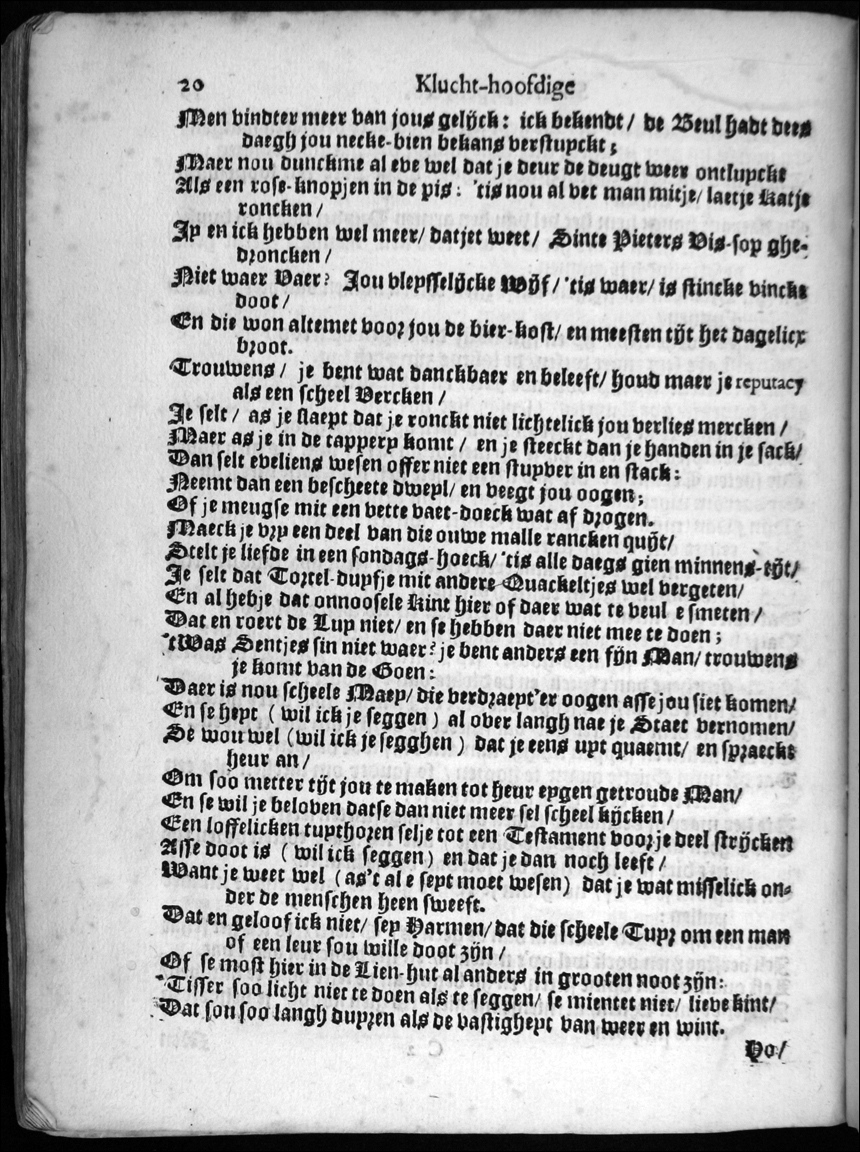 20 Klucht-hoofdige
Men vindter meer van jous gelijck: ick bekendt / de Beul hadt dees
daegh jou necke-bien bekans verstuyckt;
Maer nou dunckme al eve wel dat je deur de deugt weer ontluyckt
Als een rose-knopjen in de pis: 'tis nou al vet man mitje / laetje Katje
roncken /
Jy en ick hebben wel meer / datjet weet / Sinte Pieters Vis-sop ghe-
droncken /
Niet waer Vaer? Jou vleysselijcke Wijf / 'tis waer / is stincke vincke
doot /
En die won altemet voor jou de bier-kost / en meesten tijt het dagelicx
broot.
Trouwens / je bent wat danckbaer en beleeft / houd maer je reputacy
als een scheel Vercken /
Je selt / as je slaept dat je ronckt niet lichtelick jou verlies mercken /
Maer as je in de tappery komt / en je steeckt dan je handen in je sack /
Dan selt eveliens wesen offer niet een stuyver in en stack:
Neemt dan een bescheete dweyl / en veegt jou oogen;
Of je mengse mit een vette vaet-doeck wat af drogen.
Maeck je vry een deel van die ouwe malle rancken quijt /
Stelt je liefde in een sondags-hoeck / 'tis alle daegs gien minnens-tijt /
Je selt dat Tortel-duyfje mit andere Quackeltjes wel vergeten /
En al hebje dat onnoosele Kint hier of daer wat te veul e smeten /
Dat en roert de Luy niet / en se hebben daer niet mee te doen;
'tWas Sentjes sin niet waer? je bent anders een fijn Man / trouwens
je komt van de Goen:
Daer is nou scheele Maey / die verdraeyt'er oogen asse jou siet komen /
En se heyt ( wil ick je seggen ) al over langh nae je Staet vernomen /
Se wou wel (wil ick je segghen ) dat je eens uyt quaemt / en spraeckt
heur an /
Om soo metter tijt jou te maken tot heur eygen getroude Man /
En se wil je beloven datse dan niet meer sel scheel kijcken /
Een loffelicken tuythoren selje tot een Testament voor je deel strijcken
Asse doot is ( wil ick seggen) en dat je dan noch leeft /
Want je weet wel (as't al e seyt moet wesen) dat je wat misselick on-
der de menschen heen sweeft.
Dat en geloof ick niet / sey Harmen / dat die scheele Tuyr om een man
of een leur sou wille doot zijn /
Of se most hier in de Lien-hut al anders in grooten noot zijn:
Tisser soo licht niet te doen als te seggen / se mientet niet / lieve kint /
Dat sou soo langh duyren als de vastigheyt van weer en wint.
Ho /